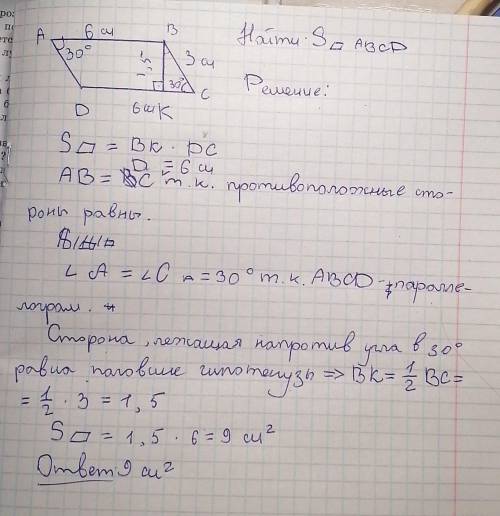 A 6 см B Найти: S▱ ABCD
30° 1,5 3 см
30° C Решение:
D 6см K
S▱ = BK · DC
AB = DC = 6 см т.к. противоположные сто-
роны равны.
∠A = ∠C = 30° т.к. ABCD - паралле-
лограм.
Сторона, лежащая напротив угла в 30°
равна половине гипотенузы => BK = 1/2 BC =
= 1/2 · 3 = 1,5
S▱ = 1,5 · 6 = 9 см²
Ответ: 9 см²